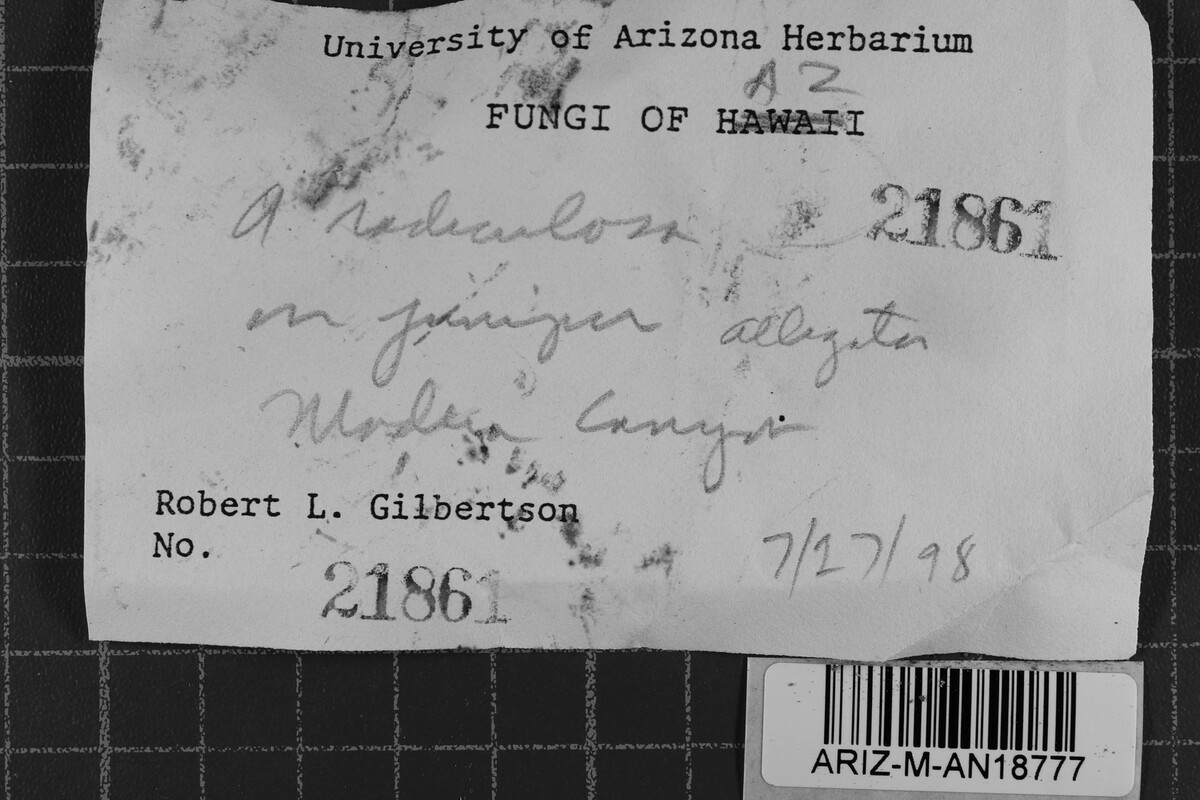 University of Arizona Herbarium
AZ
FUNGI OF HAWAII
A radiculosa 21861
on juniper alligator
Madera Canyon
Robert L. Gilbertson
No.
21861
7/27/98
ARIZ-M-AN18777